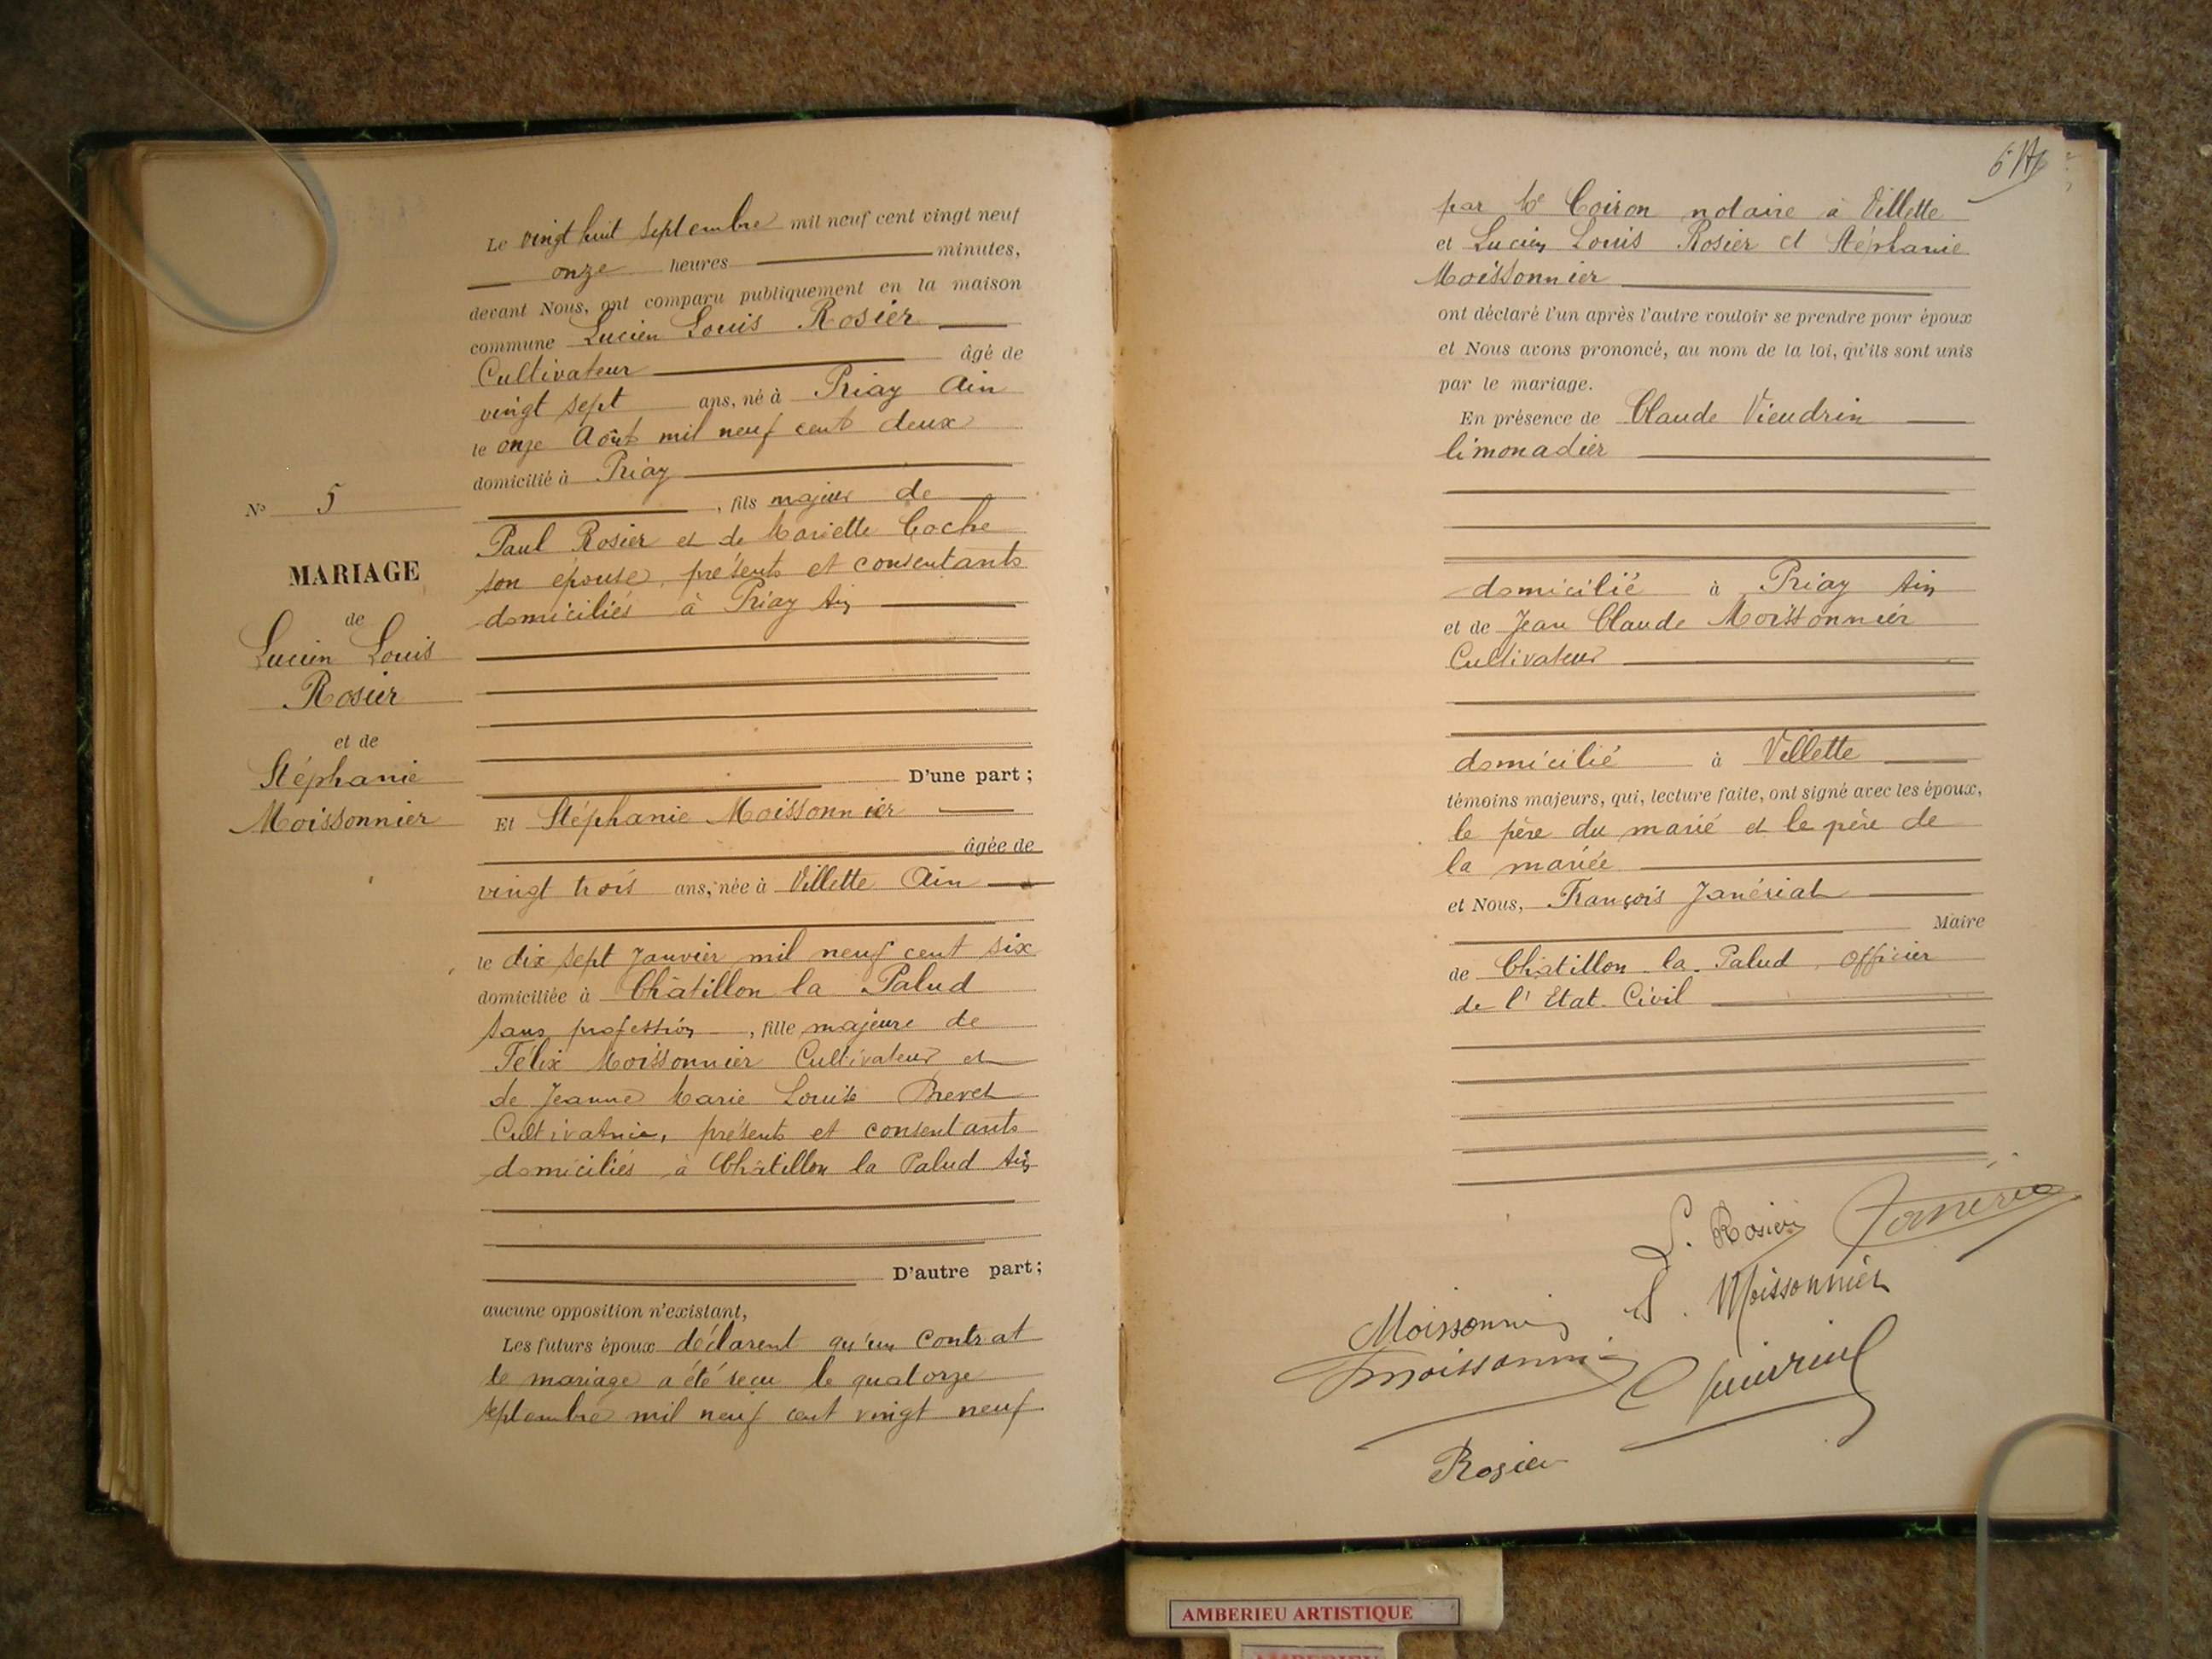 N° 5
MARIAGE
de
Lucien Louis
Rosier
et de
Stéphanie
Moissonnier
Le vingt huit septembre mil neuf cent vingt neuf
onze heures minutes,
devant Nous, ont comparu publiquement en la maison
commune Lucien Louis Rosier
Cultivateur âgé de
vingt sept ans, né à Priay Ain
le onze Août mil neuf cent deux
domicilié à Priay
, fils majeur de
Paul Rosier et de Mariette Coche
son épouse, présents et consentants
domiciliés à Priay Ain
D'une part;
Et Stéphanie Moissonnier
âgée de
vingt trois ans, née à Villette Ain
le dix sept Janvier mil neuf cent six
domiciliée à Châtillon la Palud
sans profession, fille majeure de
Félix Moissonnier Cultivateur et
de Jeanne Marie Louise Brevet
Cultivatrice, présents et consentants
domiciliés à Châtillon la Palud Ain
D'autre part;
aucune opposition n'existant,
Les futurs époux déclarent qu'un contrat
de mariage a été reçu le quatorze
septembre mil neuf cent vingt neuf
par Me Coiron notaire à Villette
et Lucien Louis Rosier et Stéphanie
Moissonnier
ont déclaré l'un après l'autre vouloir se prendre pour époux
et Nous avons prononcé, au nom de la loi, qu'ils sont unis
par le mariage.
En présence de Claude Vieudrin
limonadier
domicilié à Priay Ain
et de Jean Claude Moissonnier
Cultivateur
domicilié à Villette
témoins majeurs, qui, lecture faite, ont signé avec les époux,
le père du marié et le père de
la mariée
et Nous, François Janériat
Maire
de Châtillon la Palud officier
de l'Etat Civil
L. Rosier
S. Moissonnier
Moissonnier
Moissonnier
Rosier
AMBERIEU ARTISTIQUE
AMBERIEU